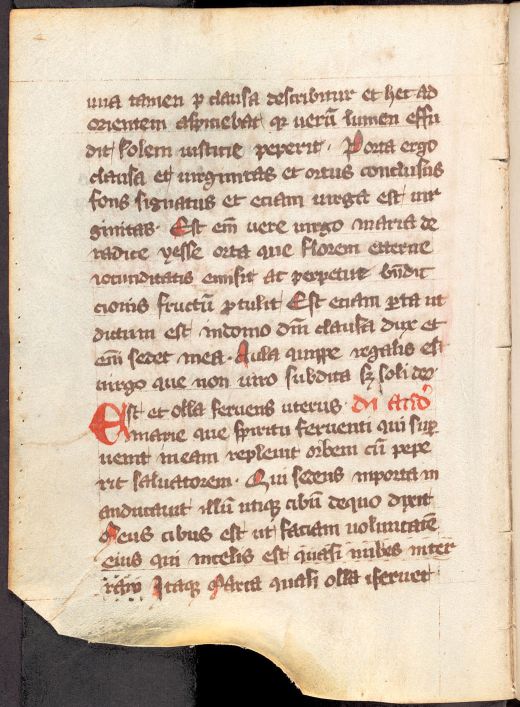 una tamen p clausa describitur et hec ad
orientem aspiciebat qr verū lumen effu
dit solem iusticie peperit · Porta ergo
clausa et virginitas et ortus conclusus
fons signatus et etiam virga est vir
ginitas · Est em̄ vere virgo maria de
radice yesse orta que florem eterne
iocunditatis emisit ac perpetue bn̄dic
cionis fructū ptulit Est etiam porta ut
dictum est in domo dn̄i clausa dux et
em̄ sedet in ea · Aula quippe regalis est
virgo que non viro subdita sꝫ soli deo·
Est et olla fervens uterus
marie que spiritu ferventi qui sup
venit in eam replevit orbem cū pepe
rit salvatorem · Qui sedens in porta m
anducavit illū utiqꝫ cibū de quo dixit
Meus cibus est ut faciam voluntatē
eius qui in celis est quasi nubes inter
Itaqꝫ Maria quasi olla